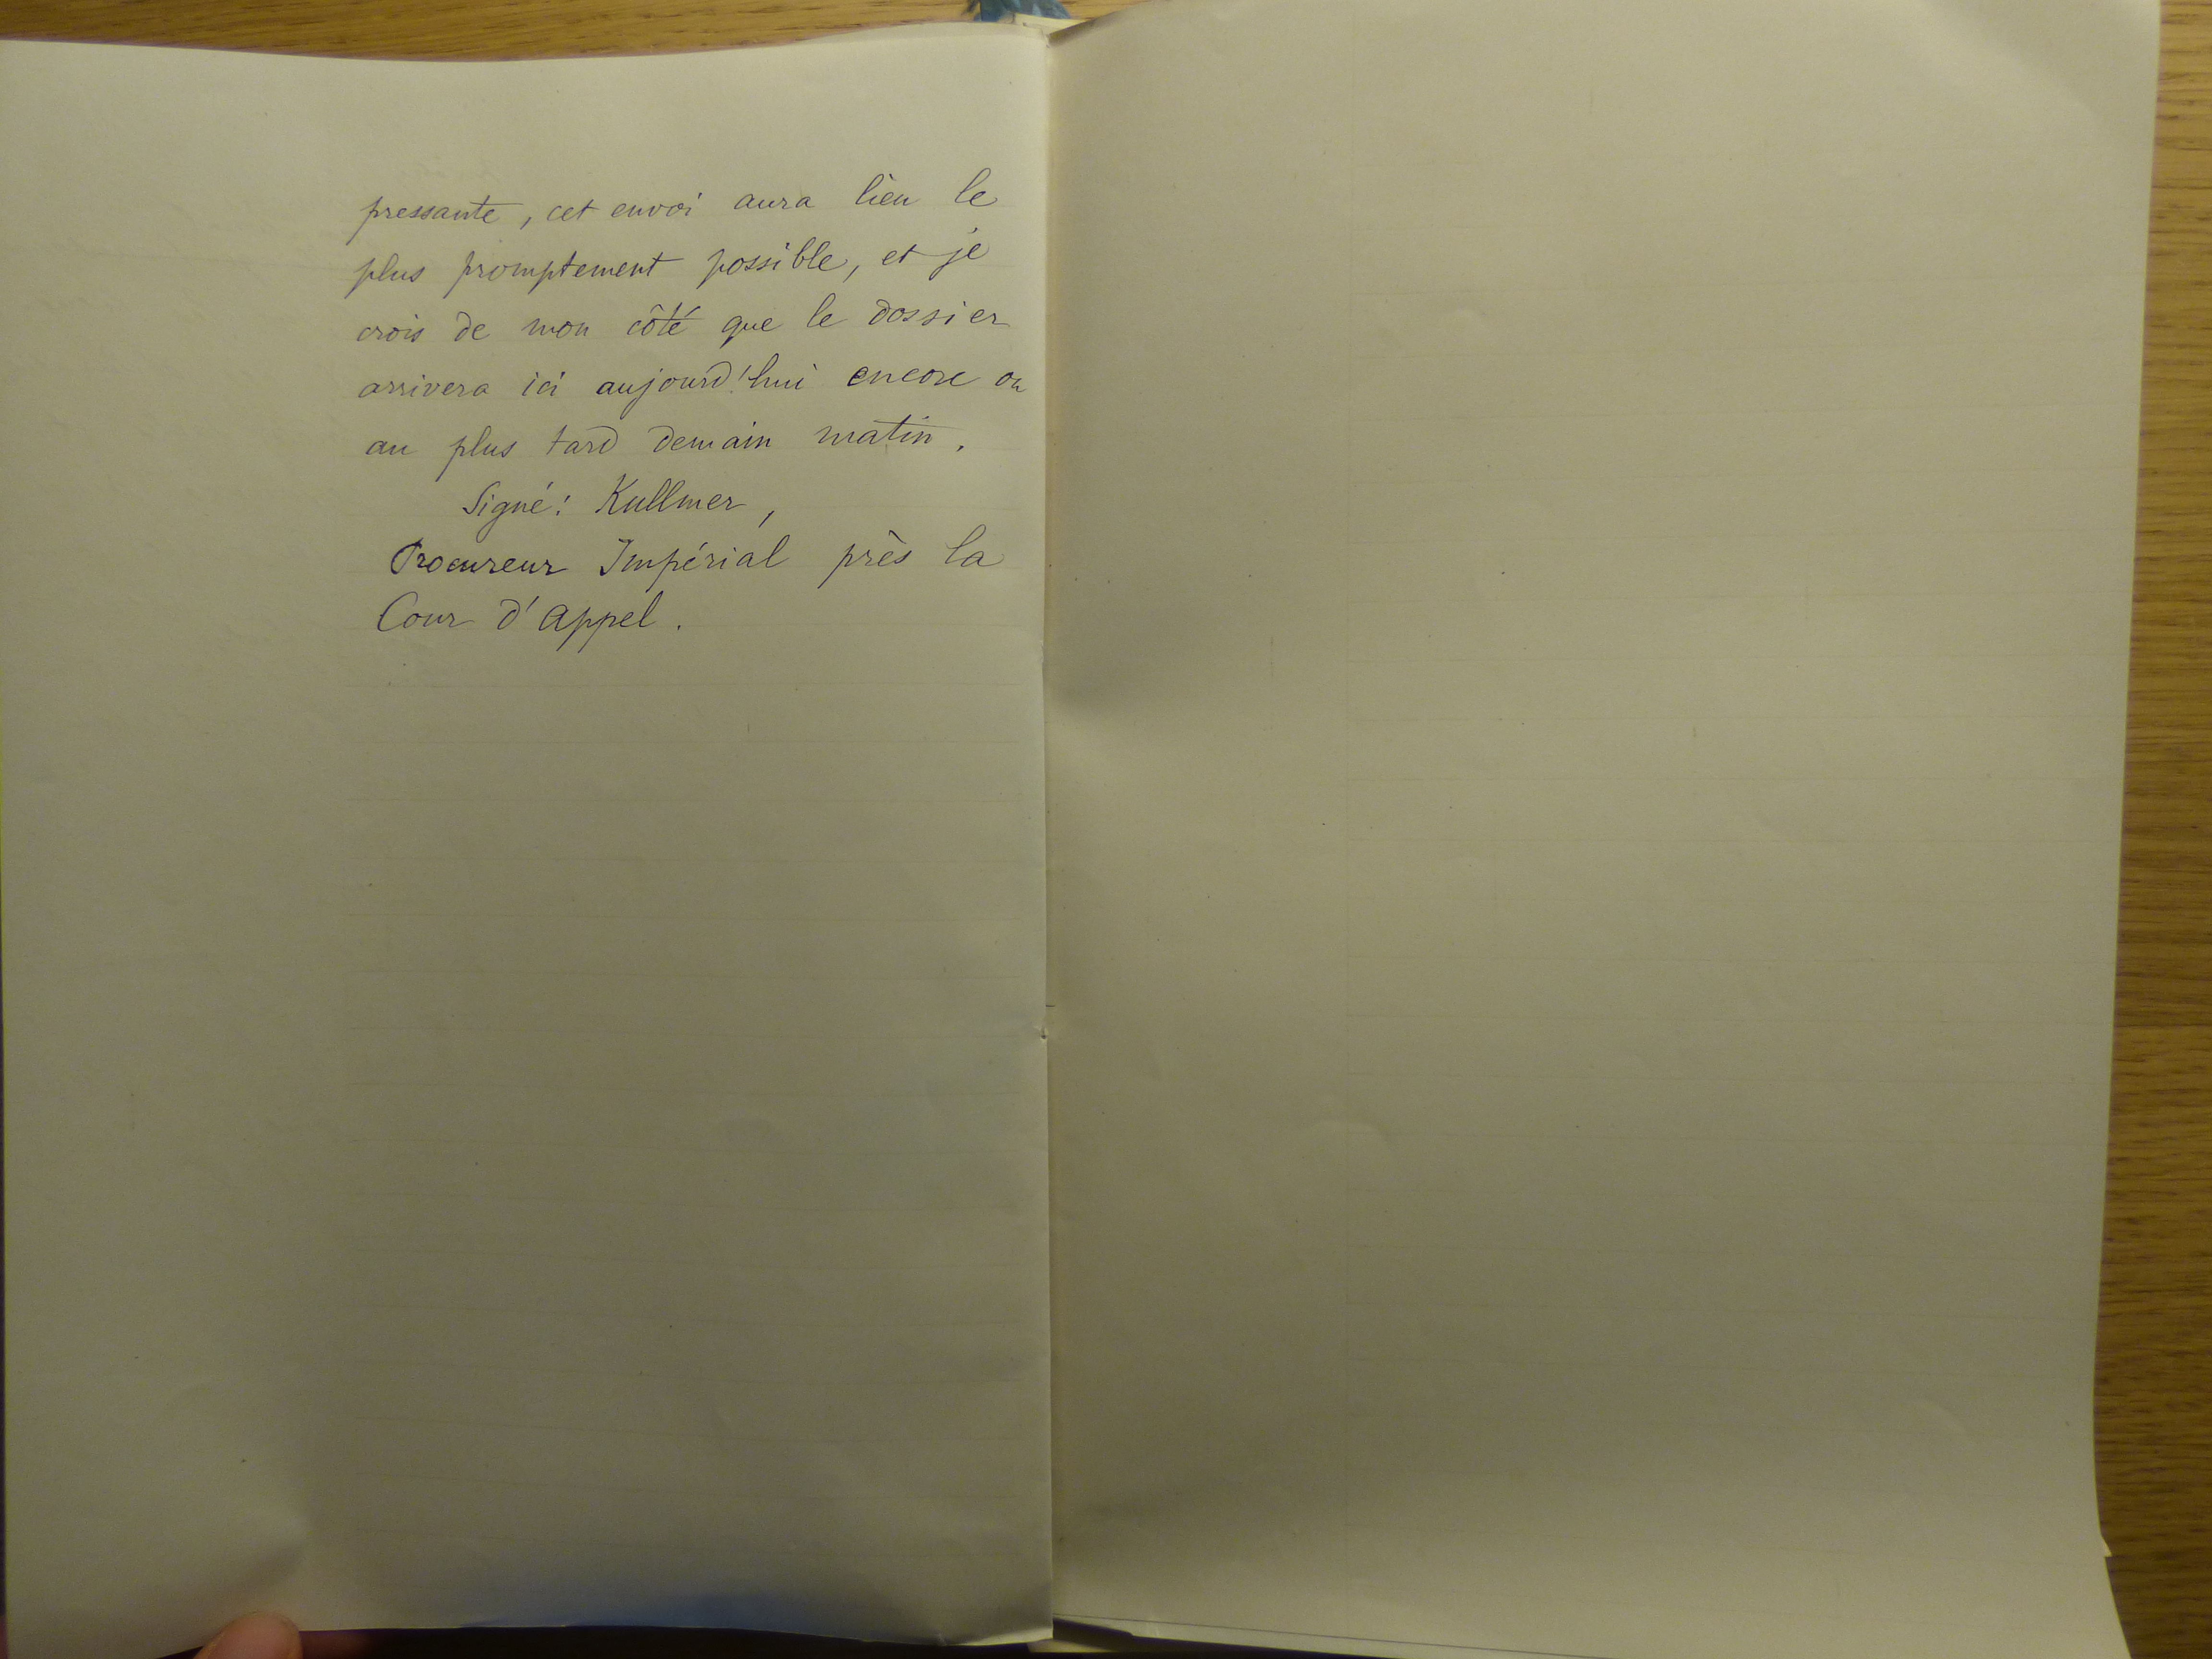 pressante, cet envoi aura lieu le
plus promptement possible, et je
crois de mon côté que le dossier
arrivera ici aujourd'hui encore ou
au plus tard demain matin.
Signé: Kullmer,
Procureur Impérial près la
Cour d'appel.